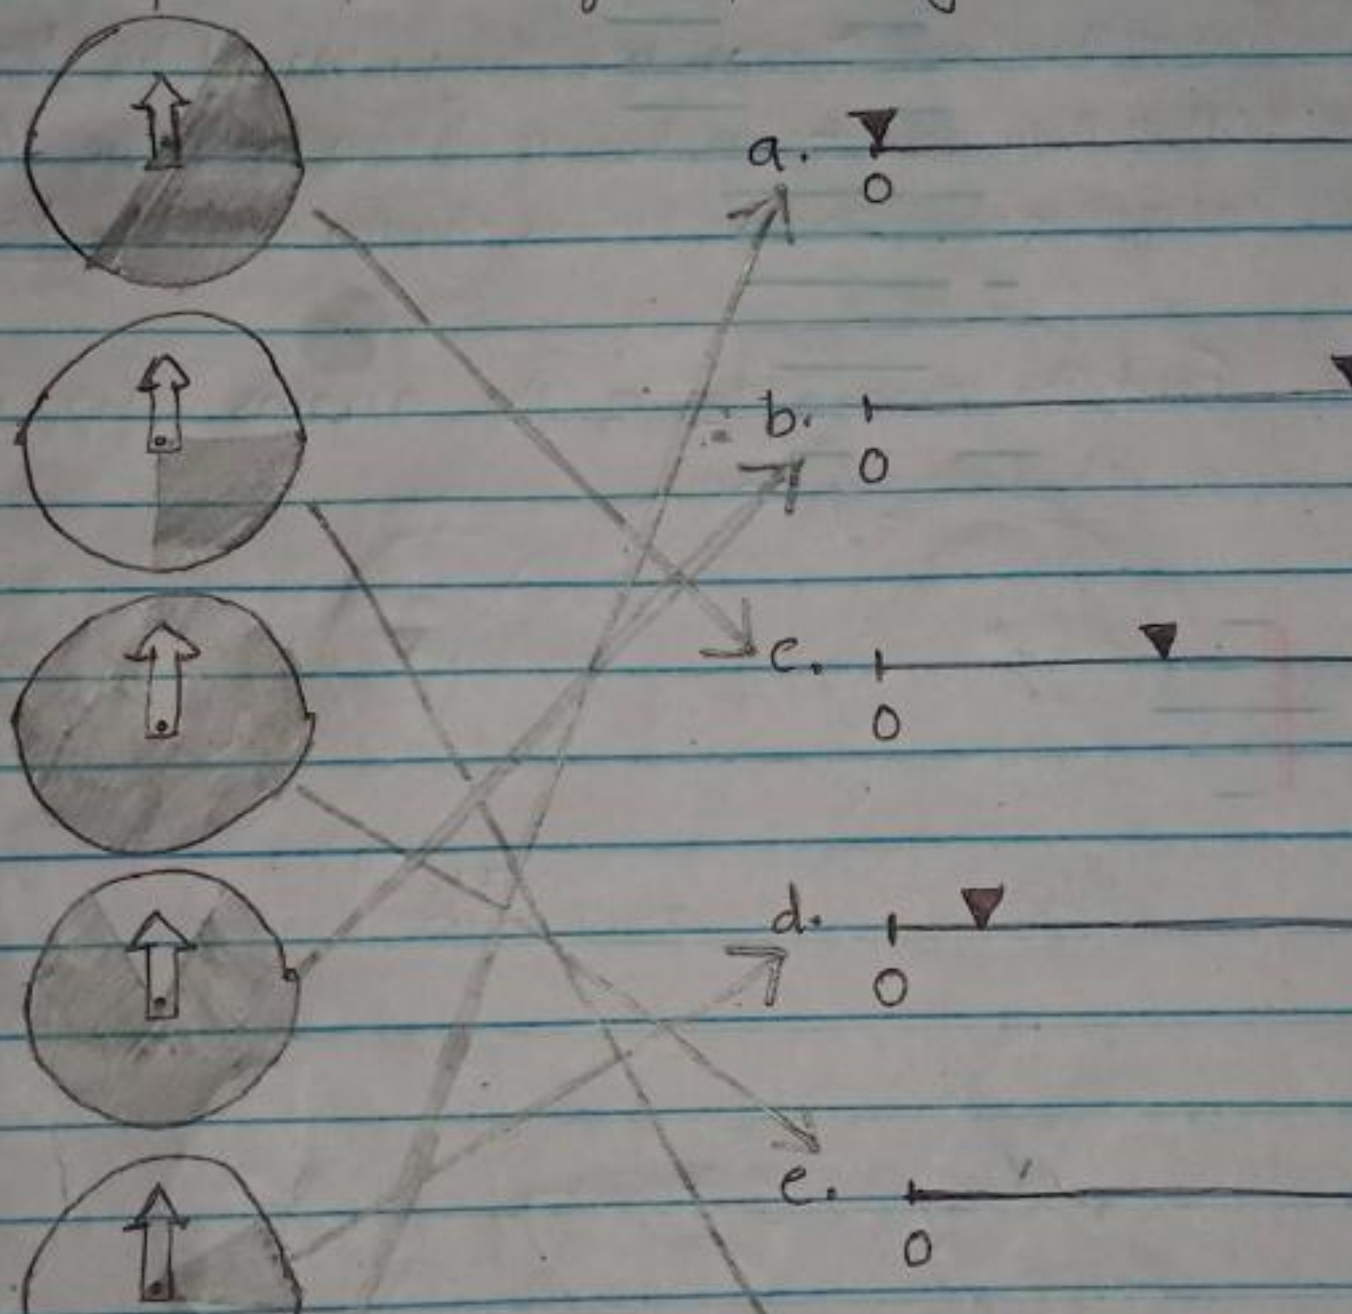 a.
0
b.
0
c.
0
d.
0
e.
0